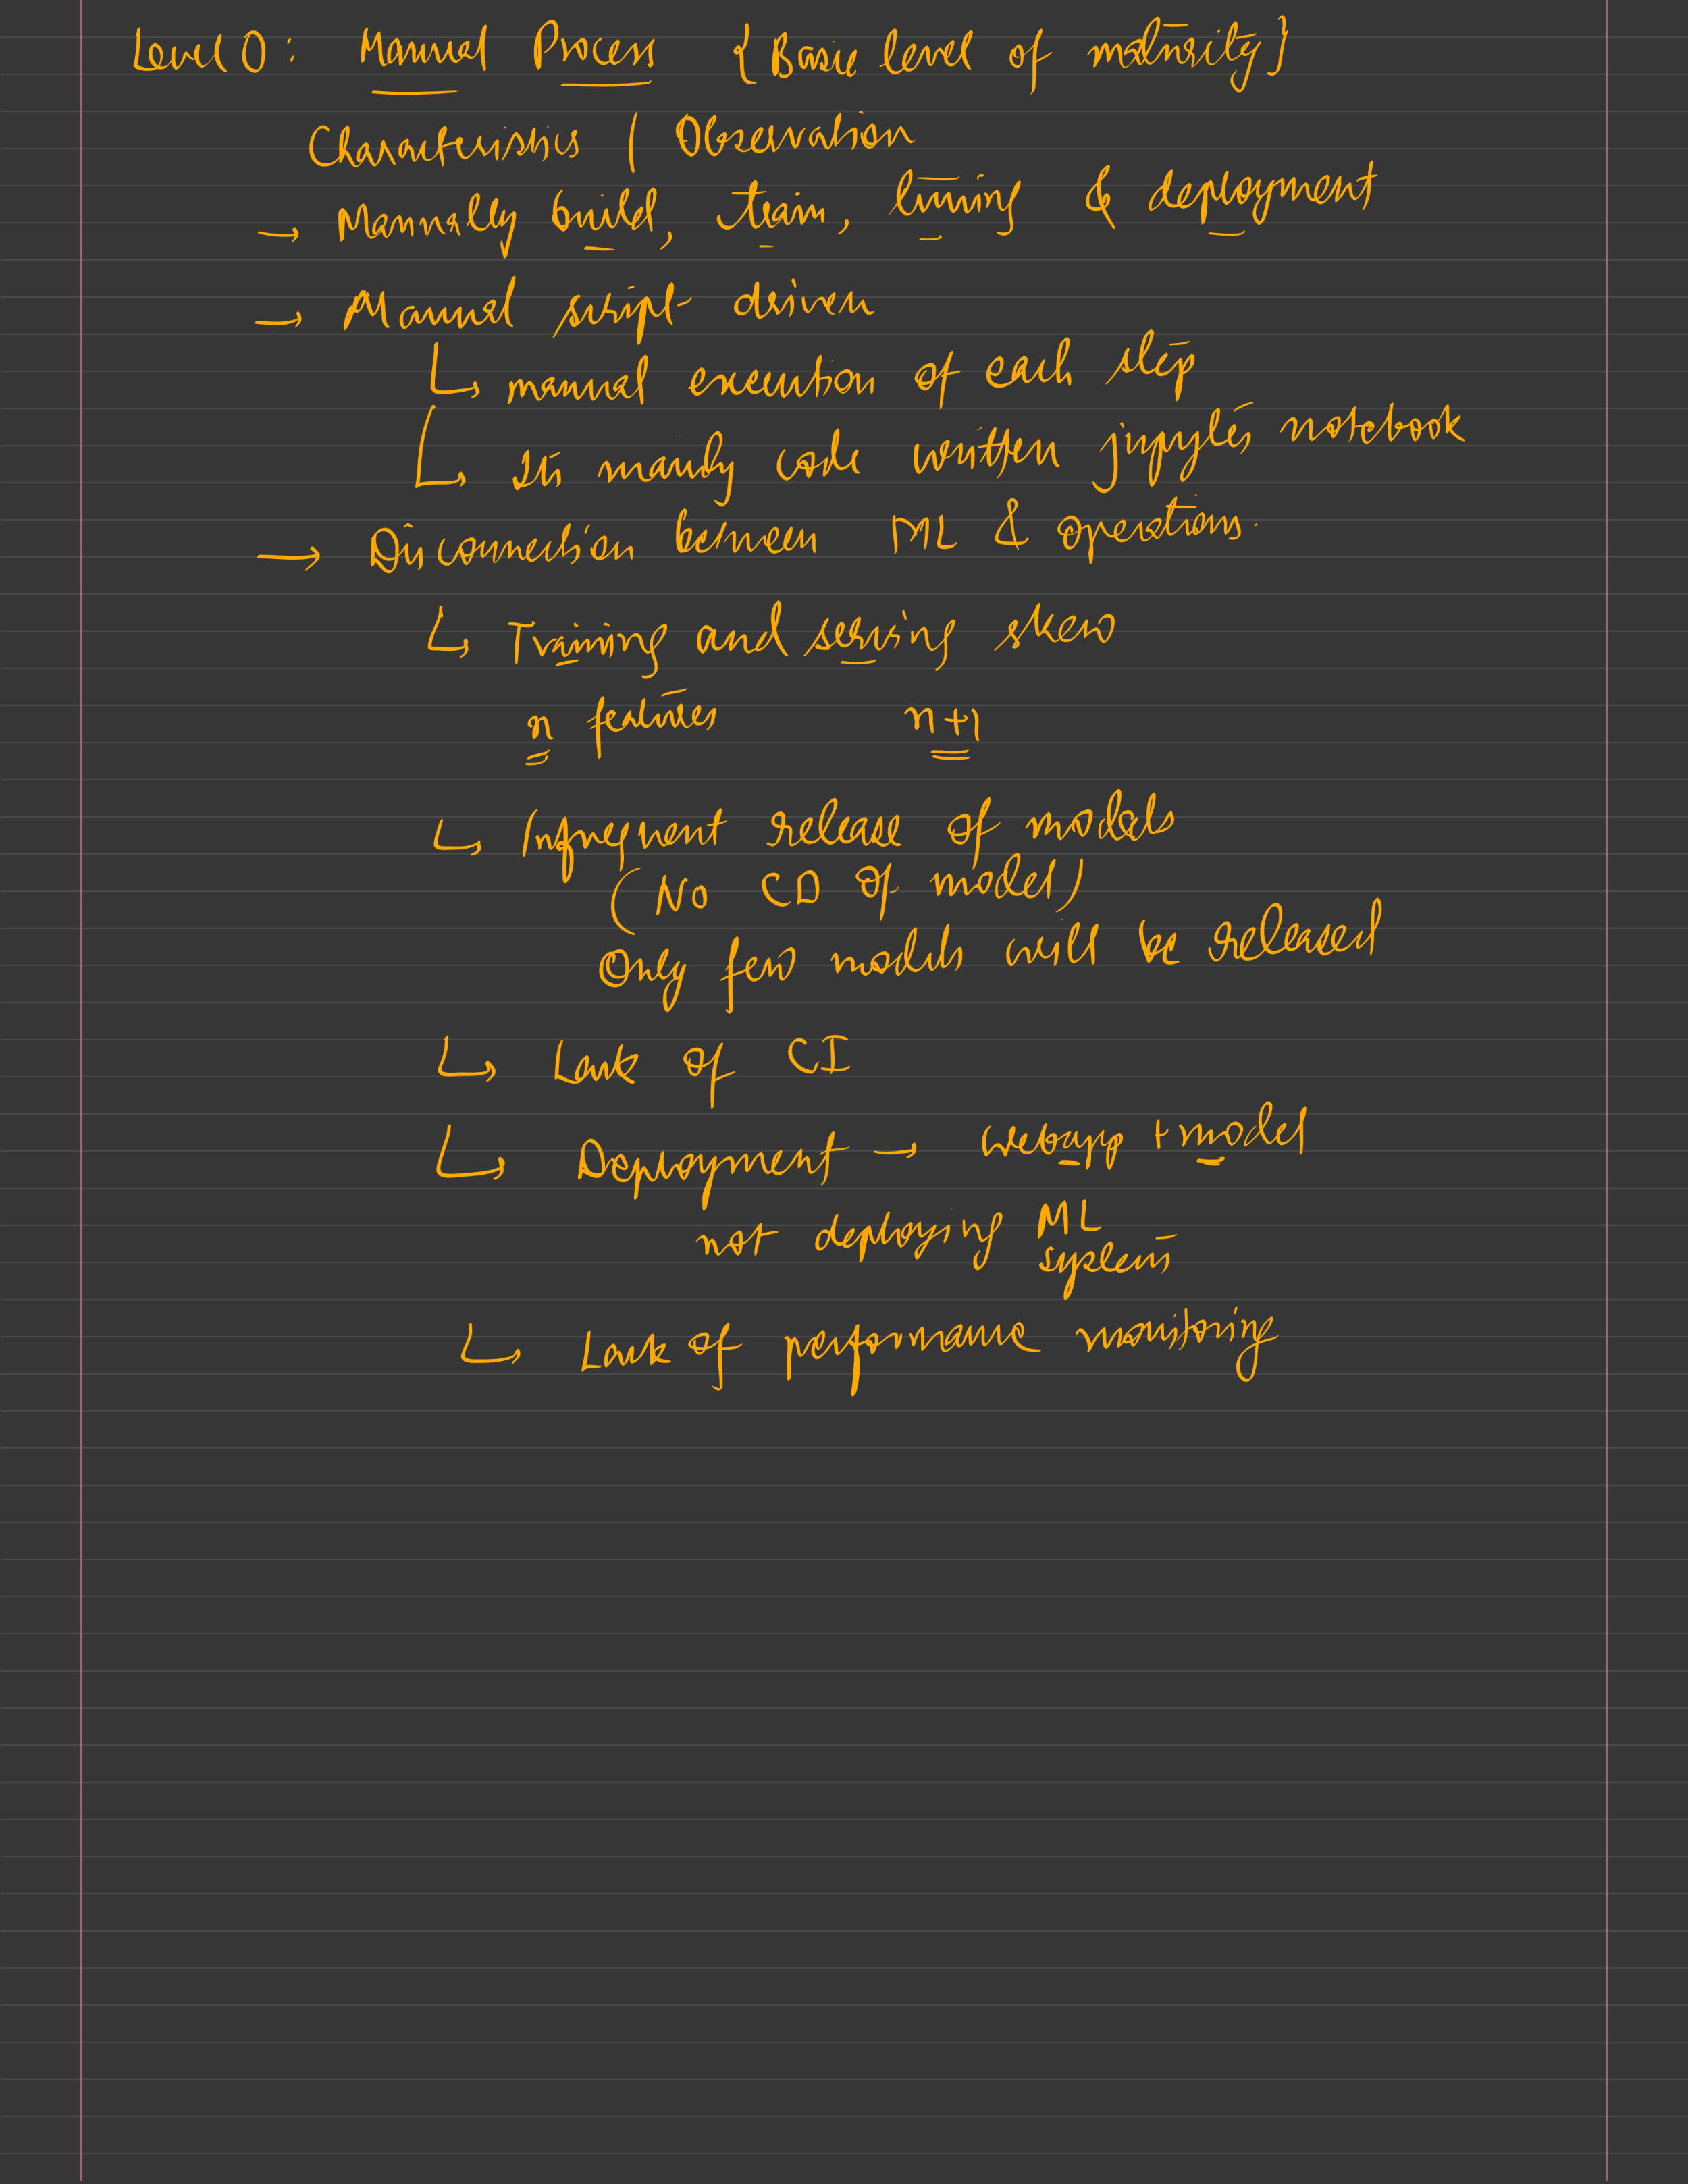 Level 0: Manual Process {Basic level of maturity}
Characteristics / Observation
→ Manually build, train, tunning & deployment
→ Manual script driven
↳ manual execution of each step
↳ In many code written jupyter notebook
→ Disconnection between ML & operations.
↳ Training and serving skew
n features n+1
↳ Infrequent release of models
(No CD of model)
Only few models will be released
↳ Lack of CI
↳ Deployment → model
not deploying ML
systems
↳ Lack of performance monitoring